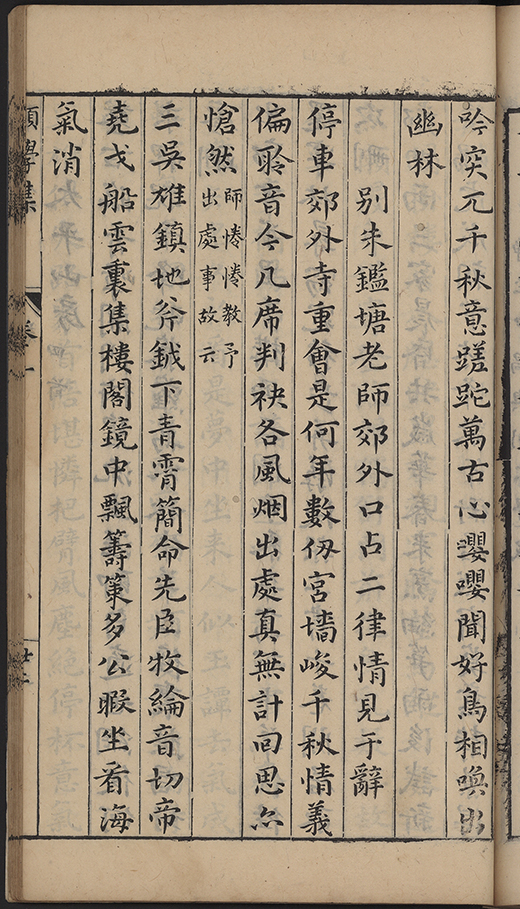 吟突兀千秋意蹉跎萬古心嚶嚶聞好鳥相喚出
幽林
別朱鑑塘老師郊外口占二律情見于辭
停車郊外寺重會是何年數仭宮墻峻千秋情義
偏聆音今几席判袂各風烟出處真無計回思亦
愴然師惓惓教予
出處事故云
三吳雄鎮地斧鉞下青霄簡命先臣牧綸音切帝
堯戈船雲裏集樓閣鏡中飄籌策多公暇坐看海
氣消
學集
卷一